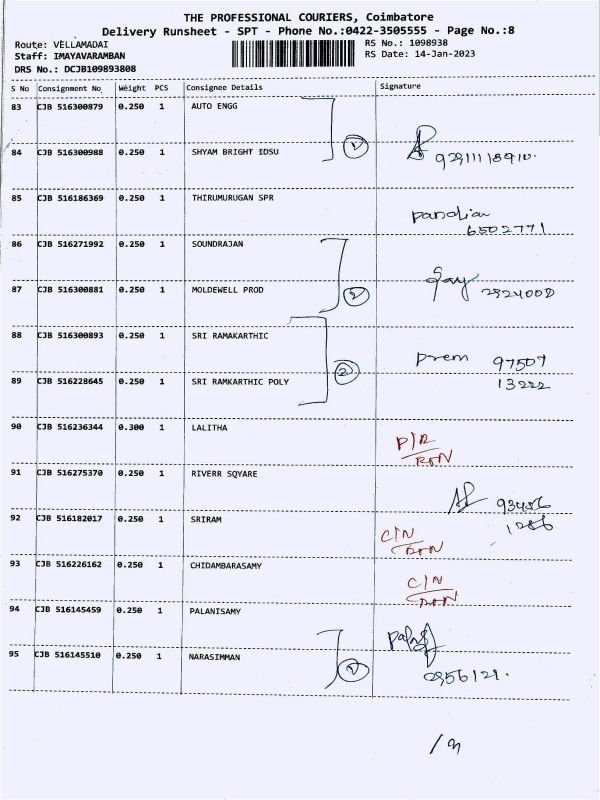 THE PROFESSIONAL COURIERS, Coimbatore
Delivery Runsheet - SPT - Phone No.:0422-3505555 - Page No.:8
Route: VELLAMADAI
RS No.: 1098938
Staff: IMAYAVARAMBAN
RS Date: 14-Jan-2023
DRS No.: DCJB109893808
S No Consignment No Weight PCS Consignee Details Signature
83 CJB 516300879 0.250 1 AUTO ENGG
84 CJB 516300988 0.250 1 SHYAM BRIGHT IDSU
85 CJB 516186369 0.250 1 THIRUMURUGAN SPR
Pandian
6502771
86 CJB 516271992 0.250 1 SOUNDRAJAN
87 CJB 516300881 0.250 1 MOLDEWELL PROD
88 CJB 516300893 0.250 1 SRI RAMAKARTHIC
Prem 97507
2
13222
89 CJB 516228645 0.250 1 SRI RAMKARTHIC POLY
90 CJB 516236344 0.300 1 LALITHA
91 CJB 516275370 0.250 1 RIVERR SQYARE
92 CJB 516182017 0.250 1 SRIRAM
C/N
93 CJB 516226162 0.250 1 CHIDAMBARASAMY
C/N
94 CJB 516145459 0.250 1 PALANISAMY
95 CJB 516145510 0.250 1 NARASIMMAN
2956121.